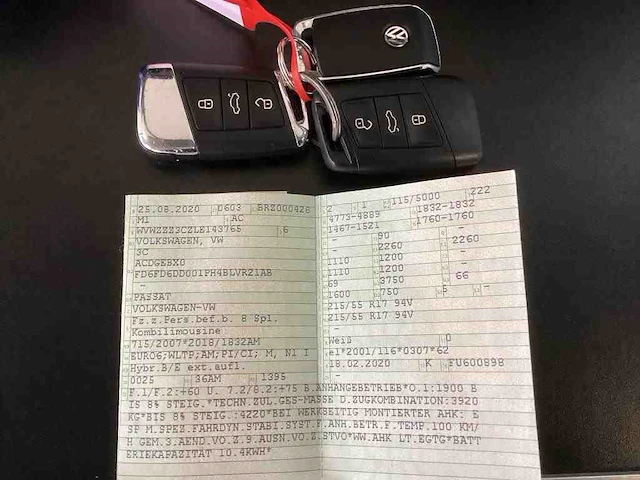 25.08.2020 0603 BRZ000428
M1 AC
WVWZZZ3CZLE143765 6
VOLKSWAGEN, VW
3C
ACDGEBX0
FD6FD6DD001PH4BLVR21AB
-
PASSAT
VOLKSWAGEN-VW
Fz.z.Pers.bef.b. 8 Spl.
Kombilimousine
715/2007*2018/1832AM
EURO6;WLTP;AM;PI/CI; M, N1 I
Hybr.B/E ext.aufl.
0025 36AM 1395
2 1 115/5000 222
4773-4889 1832-1832
1467-1521 1760-1760
- 90 -
- 2260 2260
1110 1200 -
1110 1200 -
69 3750 66
1600 750 5 -
215/55 R17 94V
215/55 R17 94V
-
Weiß 0
e1*2001/116*0307*62
18.02.2020 K FU600898
F.1/F.2:+60 U. 7.2/8.2:+75 B.ANHANGEBETRIEB*O.1:1900 B
IS 8% STEIG.*TECHN.ZUL.GES-MASSE D.ZUGKOMBINATION:3920
KG*BIS 8% STEIG.:4220*BEI WERKSEITIG MONTIERTER AHK: E
SP M.SPEZ.FAHRDYN.STABI.SYST.F.ANH.BETR.F.TEMP.100 KM/
H GEM.3.AEND.VO.Z.9.AUSN.VO.Z.STVO*WW.AHK LT.EGTG*BATT
ERIEKAPAZITÄT 10.4KWH*